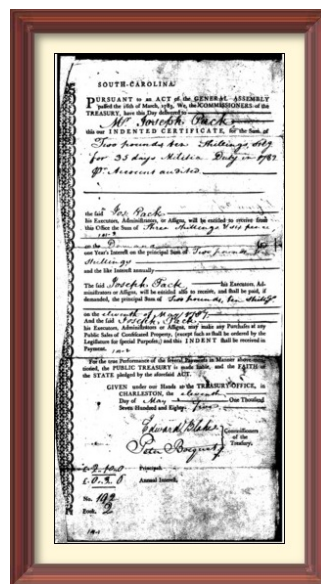 SOUTH-CAROLINA.
PURSUANT to an ACT of the GENERAL ASSEMBLY
passed the 16th of March, 1783, We, the COMMISSIONERS of the
TREASURY, have this Day delivered to
Mr. Joseph Pack
this our INDENTED CERTIFICATE, for the Sum of
Two pounds ten Shillings Stlg
for 35 days Militia Duty in 1782
Pr. Account audited.
the said Jos. Pack
his Executors, Administrators, or Assigns, will be entitled to receive from
this Office the Sum of Three Shillings & Six pence
on the Demand
one Year's Interest on the principal Sum of Two pounds ten
Shillings
and the like Interest annually
The said Joseph Pack his Executors, Ad-
ministrators or Assigns, will be entitled also to receive, and shall be paid, if
demanded, the principal Sum of Two pounds, ten Shillgs
on the eleventh of May 1787.
And the said Joseph Pack
his Executors, Administrators or Assigns, may make any Purchases at any
Public Sales of Confiscated Property, (except such as shall be ordered by the
Legislature for special Purposes;) and this INDENT shall be received in
Payment.
For the true Performance of the several Payments in Manner above-men-
tioned, the PUBLIC TREASURY is made liable, and the FAITH of
the STATE pledged by the aforesaid ACT.
GIVEN under our Hands at the TREASURY-OFFICE, in
CHARLESTON, the eleventh
Day of May One Thousand
Seven Hundred and Eighty five
Edward Blake
Peter Bocquet
Commissioners
of the
Treasury.
£. 2.10.0 Principal.
£. 0.3.6 Annual Interest.
No. 192
Book, 2